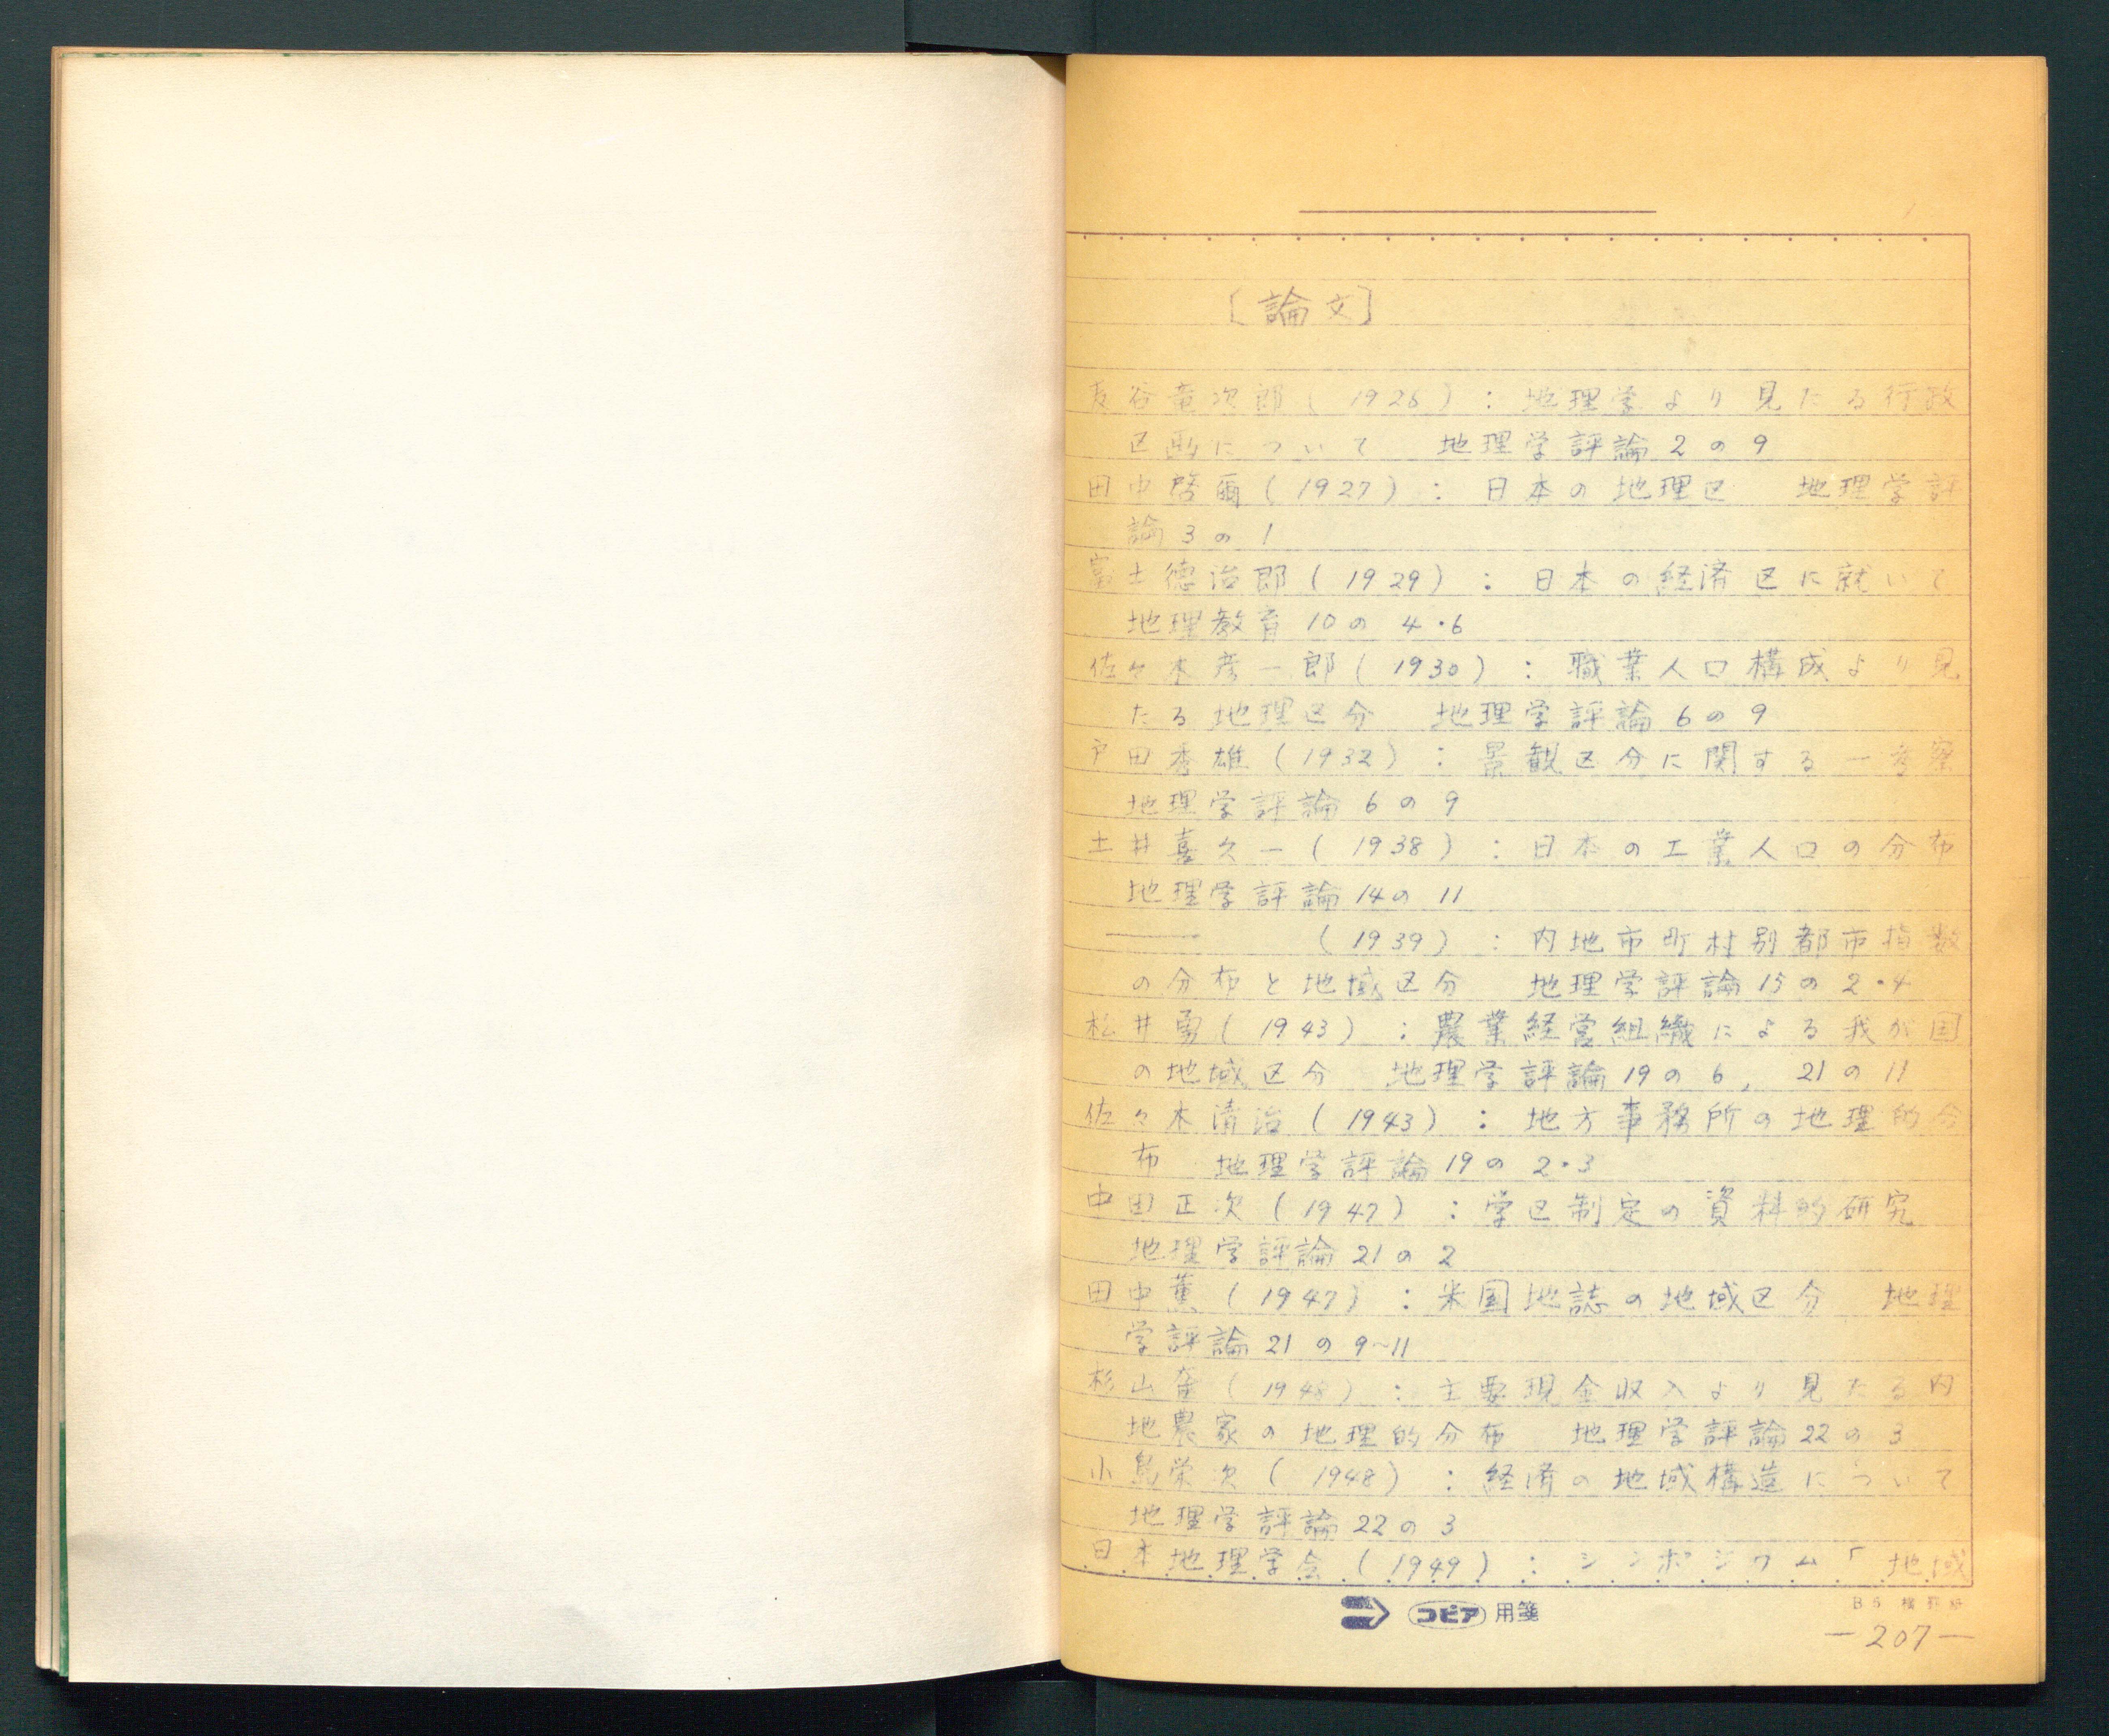 〔論文〕
長谷竜次郎(1926):地理学より見たる行政
区画について　地理学評論2の9
田中啓爾(1927):日本の地理区　地理学評
論3の1
富士徳治郎(1929):日本の経済区に就いて
地理教育10の4・6
佐々木彦一郎(1930):職業人口構成より見
たる地理区分　地理学評論6の9
戸田秀雄(1932):景観区分に関する一考察
地理学評論6の9
土井喜久一(1938):日本の工業人口の分布
地理学評論14の11
――(1939):内地市町村別都市指数
の分布と地域区分　地理学評論15の2・4
松井勇(1943):農業経営組織による我が国
の地域区分　地理学評論19の6,　21の11
佐々木清治(1943):地方事務所の地理的分
布　地理学評論19の2・3
中田正次(1947):学区制定の資料的研究
地理学評論21の2
田中薫(1947):米国地誌の地域区分　地理
学評論21の9~11
杉山(1948):主要現金収入より見たる内
地農家の地理的分布　地理学評論22の3
小島栄次(1948):経済の地域構造について
地理学評論22の3
日本地理学会(1949):シンポジウム「地域
コピア用箋
B5 横罫紙
―207―